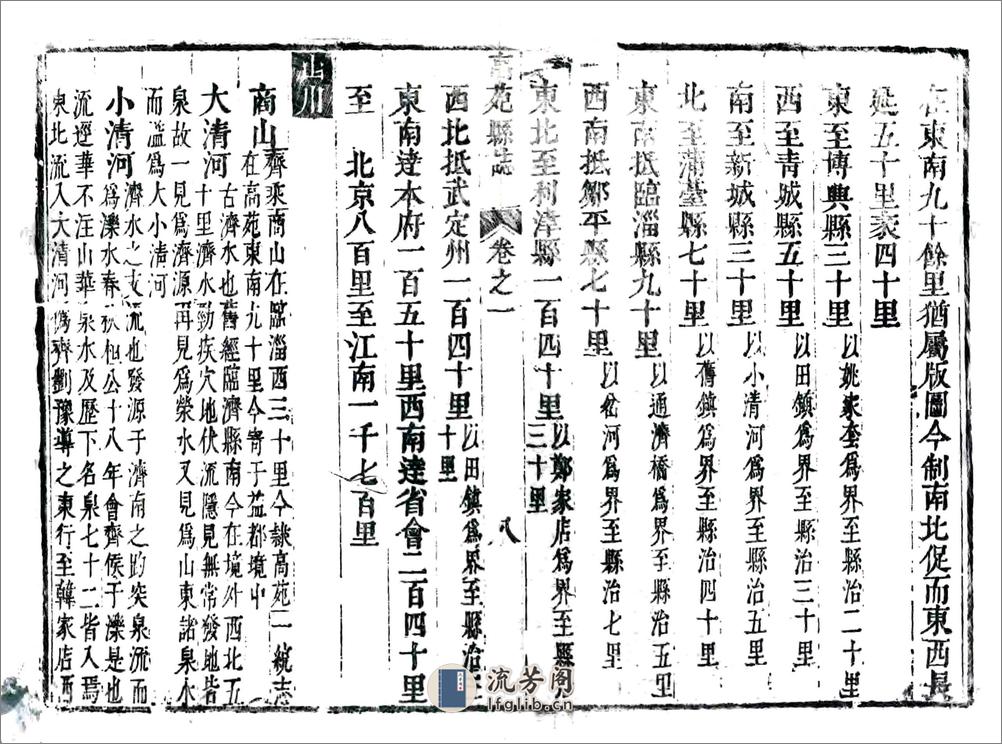 在東南九十餘里猶屬版圖今制南北促而東西長
延五十里袤四十里
東至博興縣三十里以姚家套爲界至縣治二十里
西至青城縣五十里以田鎮爲界至縣治三十里
南至新城縣三十里以小清河爲界至縣治五里
北至蒲臺縣七十里以舊鎮爲界至縣治四十里
東南抵臨淄縣九十里以通濟橋爲界至縣治五里
西南抵鄒平縣七十里以岔河爲界至縣治七里
東北至利津縣一百四十里以鄭家店爲界至縣
三十里
苑縣誌 卷之一 八
西北抵武定州一百四十里以田鎮爲界至縣治三
十里
東南達本府一百五十里西南達省會二百四十里
至 北京八百里至江南一千七百里
山川
商山齊乘商山在臨淄西三十里今隸高苑一統志
在高苑東南九十里今寄于益都境中
大清河古濟水也舊經臨濟縣南今在境外西北五
十里濟水勁疾穴地伏流隱見無常發地皆
泉故一見爲濟源再見爲滎水又見爲山東諸泉水
而溢爲大小清河
小清河濟水之支流也發源于濟南之趵突泉流而
爲濼水春秋桓公十八年會齊侯于濼是也
流逕華不注山華泉水及歷下名泉七十二皆入焉
東北流入大清河僞齊劉豫導之東行至韓家店西
流芳阁
lfglib.cn